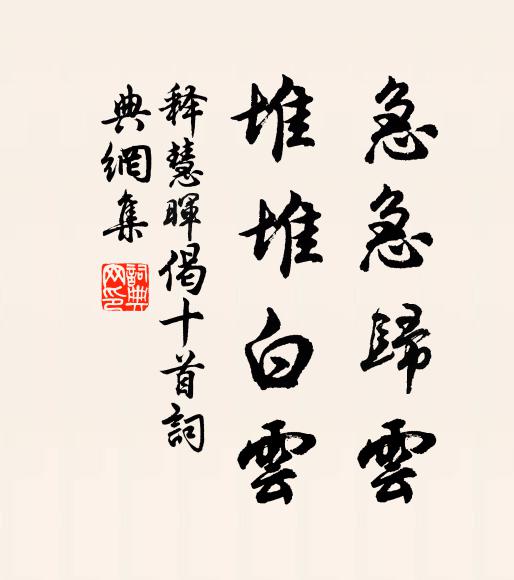 急急歸雲
堆堆白雲
释慧暉偈十首詞
典網集
詞典網印